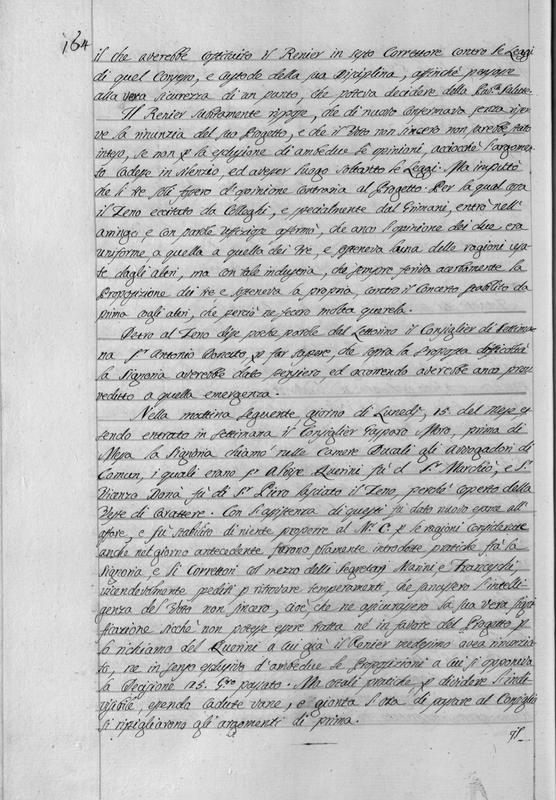 164
il che averebbe costituito il Renier in solo Correttore contro le Leggi
di quel Consesso, e custode della sua Disciplina, affinchè passasse
alla vera sicurezza di un punto, che poteva decidere della Pub.ca Salute.
Il Renier saldamente rispose, che di nuovo confermava senza riser-
ve la rinunzia del suo Progetto, e che il Voto non sincero non sarebbe stato
inteso, se non p la esclusione di ambedue le opinioni, acciocchè l'argomen-
to cadesse in silenzio, ed avesser luogo soltanto le Leggi. Ma
che li tre soli fossero d'opinione contraria al Progetto. Per la qual cosa
il Zeno eccitato da Colleghi, e specialmente dal Grimani, entrò nell'
aringo; e con parole affermò, che anco l'opinione dei due era
uniforme a quella a quella dei tre, e sosteneva l'una delle ragioni usa-
te dagli altri, ma con tale industria, che sempre feriva acerbamente la
Proposizione dei tre e sosteneva la propria, contro il Concerto stabilito da
prima cogli altri, che perciò ne fecero molta querela.
Dietro al Zeno disse poche parole dal Lettorino il Consiglier di Settima-
na s.r Antonio p far sapere, che sopra la Proposta difficoltà
la Signoria averebbe dato pensiero ed occorrendo averebbe anco prov-
veduto a quella emergenza.
Nella mattina seguente giorno di Lunedì, 15 del Mese es-
sendo entrato in Settimana il Consiglier Gasparo Moro, prima di
Messa la Signoria chiamò nelle Camere Ducali gli Avvogadori di
Comun, i quali erano s.r Alvise Querini fù di s.r Marchiò, e s.r
Vicenzo Donà fù di s.r Piero lasciato il Zeno, perchè coperto della
Veste di Correttore. Con l'assistenza di questi fu dato nuovo esame all'
affare, e fù stabilito di niente proporre al M.r C. p le ragioni considerate
anche nel giorno antecedente furono solamente introdotte pratiche frà la
Signoria e li Correttori col mezzo delli Segretarj Marini e Franceschi,
vicendevolmente spediti p ritrovare temperamenti, che sancissero l'intelli-
genza del Voto non sincero, cioè che ne assicurassero la sua vera signi-
ficazione sicchè non potesse essere tratta nè in favore del Progetto p
lo richiamo del Querini a cui già il Renier medesimo avea rinunzia-
to, nè in senso esclusivo d'ambedue le Proposizioni a cui si opponeva
la Decisione 25. Gen.ro passato. Ma cotali pratiche p dividere l'indi-
visibile, essendo cadute vane, e gionta l'ora di passare al Consiglio
si ripigliarono gli argomenti di prima.